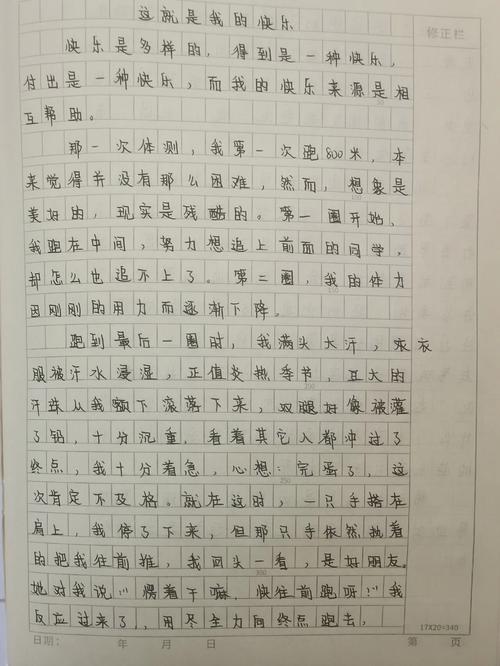 这就是我的快乐
修正栏
快乐是多样的，得到是一种快乐，
付出是一种快乐，而我的快乐来源是相
互帮助。
那一次体测，我第一次跑800米，本
来觉得并没有那么困难，然而，想象是
美好的，现实是残酷的。第一圈开始，
我跑在中间，努力想追上前面的同学，
却怎么也追不上了。第二圈，我的体力
因刚刚的用力而逐渐下降。
跑到最后一圈时，我满头大汗，衣
服被汗水浸湿，正值炎热季节，豆大的
汗珠从我额下滚落下来，双腿好像被灌
了铅，十分沉重，看着其它人都冲过了
终点，我十分着急，心想：完蛋了，这
次肯定不及格。就在这时，一只手搭在
肩上，我停了下来，但那只手依然执着
的把我往前推，我回头一看，是好朋友。
她对我说："愣着干嘛，快往前跑呀！"我
反应过来了，用尽全力向终点跑去，
17X20=340
日期： 年 月 日 第 页